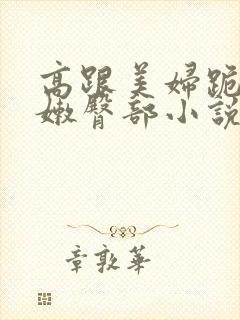 高跟美婦跪
嫩臀部小説
章敦華